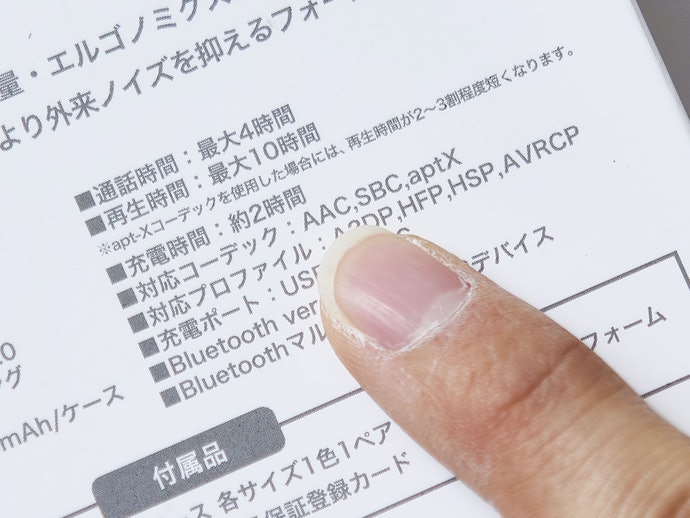 量・エルゴノミクス
より外来ノイズを抑えるフォー
■通話時間：最大4時間
■再生時間：最大10時間
※apt-Xコーデックを使用した場合には、再生時間が2～3割程度短くなります。
■充電時間：約2時間
■対応コーデック：AAC,SBC,aptX
■対応プロファイル：A2DP,HFP,HSP,AVRCP
■充電ポート：USB
■Bluetooth ver
■Bluetoothマル デバイス
0
グ
mAh/ケース
フォーム
付属品
ス 各サイズ1色1ペア
保証登録カード